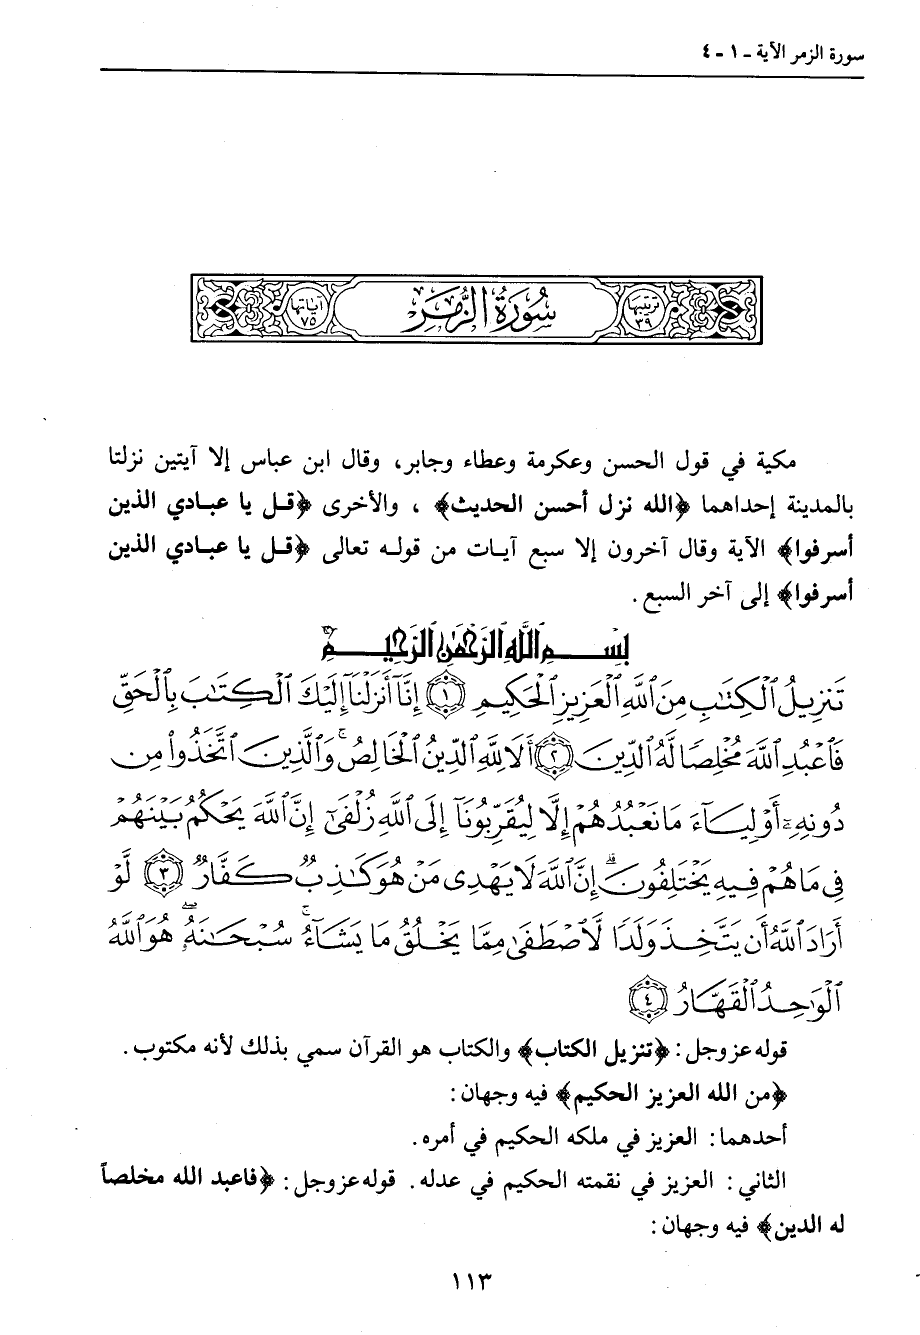 سورة الزمر الآية - ١ - ٤
ترتيبها ٣٩
سُورَةُ الزُّمَرِ
آياتها ٧٥
مكية في قول الحسن وعكرمة وعطاء وجابر، وقال ابن عباس إلا آيتين نزلتا
بالمدينة إحداهما ﴿الله نزل أحسن الحديث﴾ ، والأخرى ﴿قـل يا عبـادي الذين
أسرفوا﴾ الآية وقال آخرون إلا سبع آيـات من قولـه تعالى ﴿قـل يا عبـادي الذين
أسرفوا﴾ إلى آخر السبع .
بِسْمِ اللَّهِ الرَّحْمَٰنِ الرَّحِيمِ
تَنزِيلُ ٱلْكِتَٰبِ مِنَ ٱللَّهِ ٱلْعَزِيزِ ٱلْحَكِيمِ ١ إِنَّآ أَنزَلْنَآ إِلَيْكَ ٱلْكِتَٰبَ بِٱلْحَقِّ
فَٱعْبُدِ ٱللَّهَ مُخْلِصًا لَّهُ ٱلدِّينَ ٢ أَلَا لِلَّهِ ٱلدِّينُ ٱلْخَالِصُ ۚ وَٱلَّذِينَ ٱتَّخَذُوا۟ مِن
دُونِهِۦٓ أَوْلِيَآءَ مَا نَعْبُدُهُمْ إِلَّا لِيُقَرِّبُونَآ إِلَى ٱللَّهِ زُلْفَىٰٓ إِنَّ ٱللَّهَ يَحْكُمُ بَيْنَهُمْ
فِى مَا هُمْ فِيهِ يَخْتَلِفُونَ ۗ إِنَّ ٱللَّهَ لَا يَهْدِى مَنْ هُوَ كَٰذِبٌ كَفَّارٌ ٣ لَّوْ
أَرَادَ ٱللَّهُ أَن يَتَّخِذَ وَلَدًا لَّٱصْطَفَىٰ مِمَّا يَخْلُقُ مَا يَشَآءُ ۚ سُبْحَٰنَهُۥ ۖ هُوَ ٱللَّهُ
ٱلْوَٰحِدُ ٱلْقَهَّارُ ٤
قوله عز وجل : ﴿تنزيل الكتاب﴾ والكتاب هو القرآن سمي بذلك لأنه مكتوب .
﴿من الله العزيز الحكيم﴾ فيه وجهان :
أحدهما : العزيز في ملكه الحكيم في أمره .
الثاني : العزيز في نقمته الحكيم في عدله . قوله عز وجل : ﴿فاعبد الله مخلصاً
له الدين﴾ فيه وجهان :
١١٣